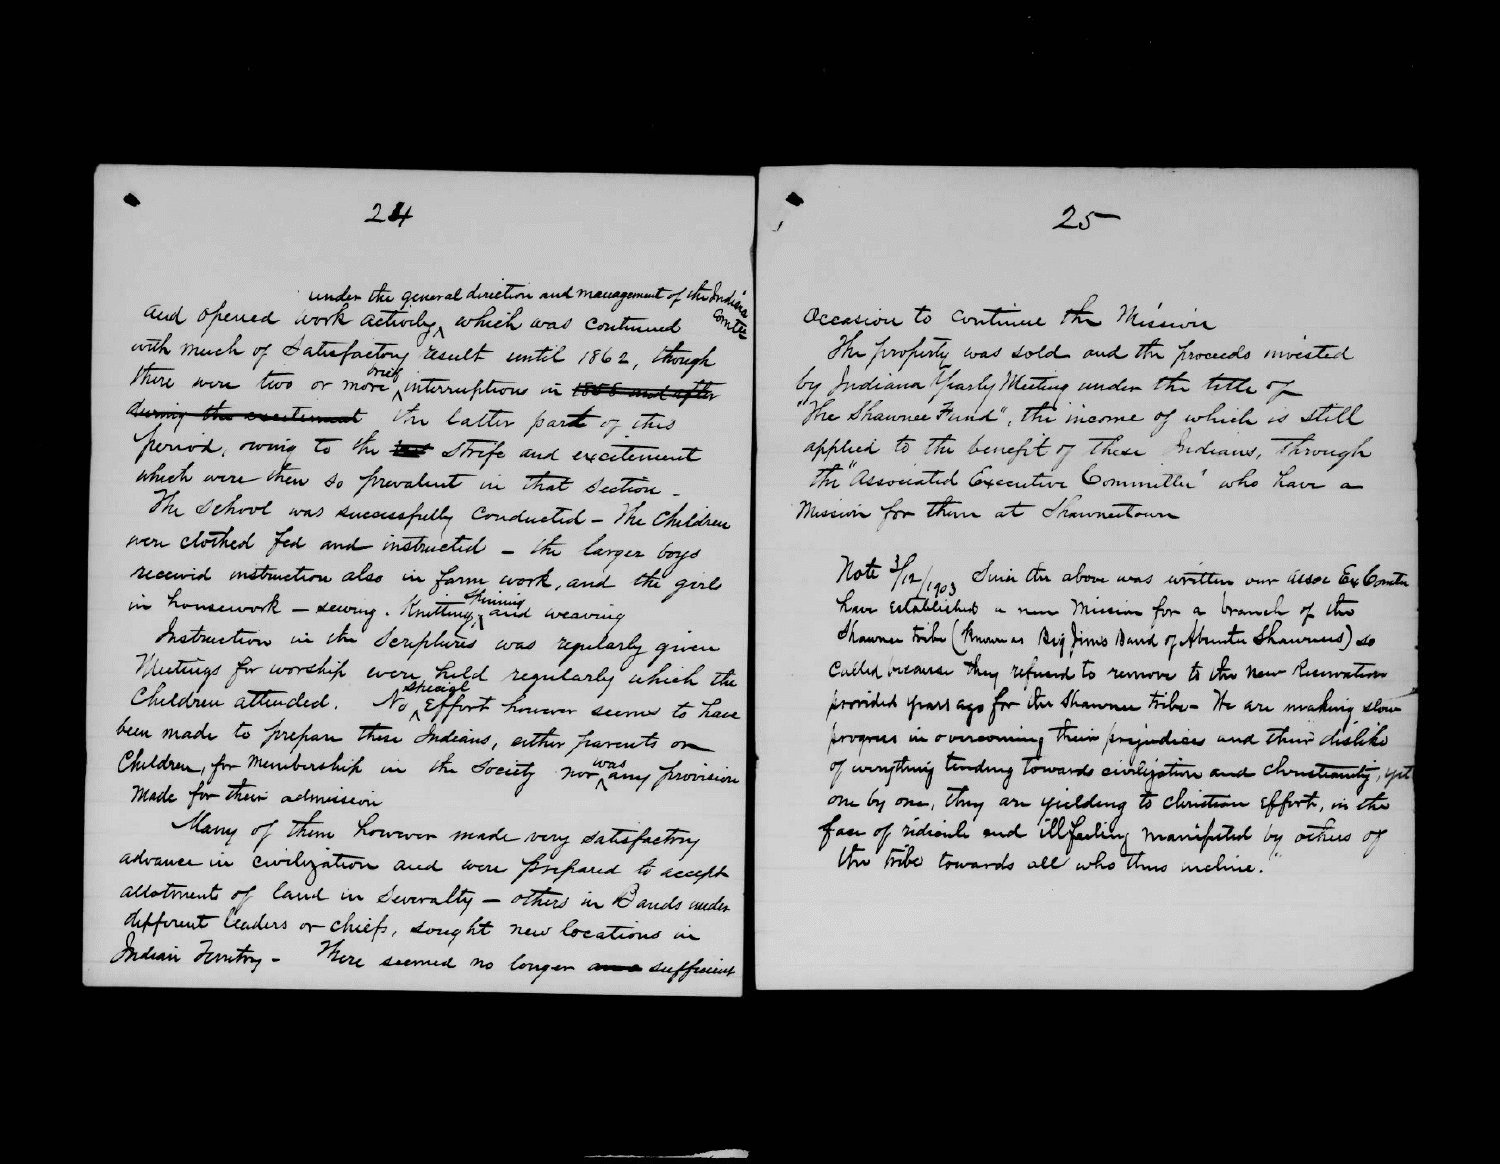 24
under the general direction and management of the Indiana Comtee
and opened work actively, which was continued
with much of Satisfactory result until 1862, though
there were two or more brief interruptions in 1858 and after
during the excitement the latter part of this
period, owing to the strife and excitement
which were then so prevalent in that section -
The School was successfully conducted - The Children
were clothed fed and instructed - the larger boys
received instruction also in farm work, and the girls
in housework - sewing. Knitting, Spinning and weaving
Instruction in the Scriptures was regularly given
Meetings for worship were held regularly which the
Children attended. No special Effort however seems to have
been made to prepare these Indians, either parents or
Children, for membership in the Society nor was any provision
made for their admission
Many of them however made very satisfactory
advance in civilization and were prepared to accept
allotments of land in Severalty - others in Bands under
different leaders or chiefs, sought new locations in
Indian Territory - There seemed no longer sufficient
25
Occasion to continue the Mission
The property was sold and the proceeds invested
by Indiana Yearly Meeting under the title of
"The Shawnee Fund", the income of which is still
applied to the benefit of these Indians, through
the "Associated Executive Committee" who have a
Mission for them at Shawneetown
Note 3/12/1903 Since the above was written our assoc Ex Comtee
have established a new Mission for a branch of the
Shawnee tribe (known as Big Jims Band of Absentee Shawnees) so
called because they refused to remove to the new Reservation
provided years ago for the Shawnee tribe - We are making slow
progress in overcoming their prejudices and their dislike
of everything tending towards civilization and christianity, yet
one by one, they are yielding to christian effort, in the
face of ridicule and illfeeling manifested by others of
the tribe towards all who thus incline."